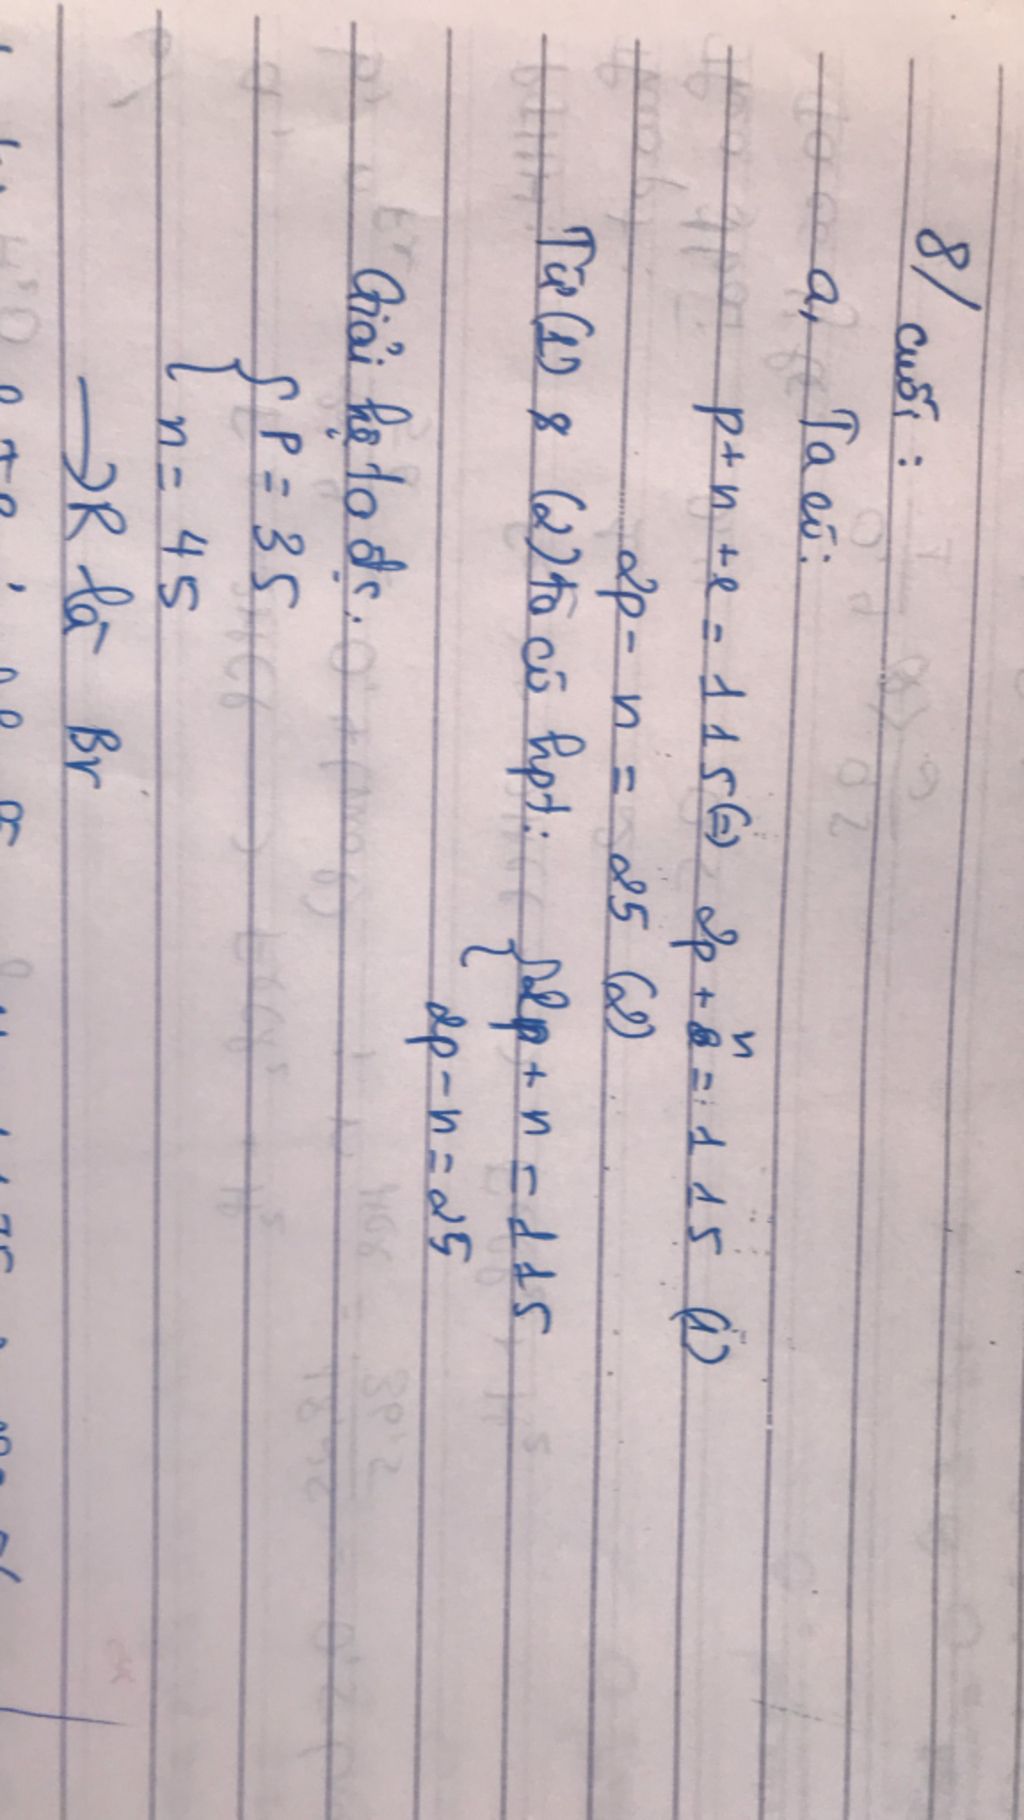 8/ cuối:
a, Ta có:
p+n+e=115(=) 2p+n=115 (1)
2p-n=25 (2)
Từ (1) & (2) ta có hpt: {2p+n=115
2p-n=25
Giải hệ ta đc:
{p=35
n=45
→R là Br